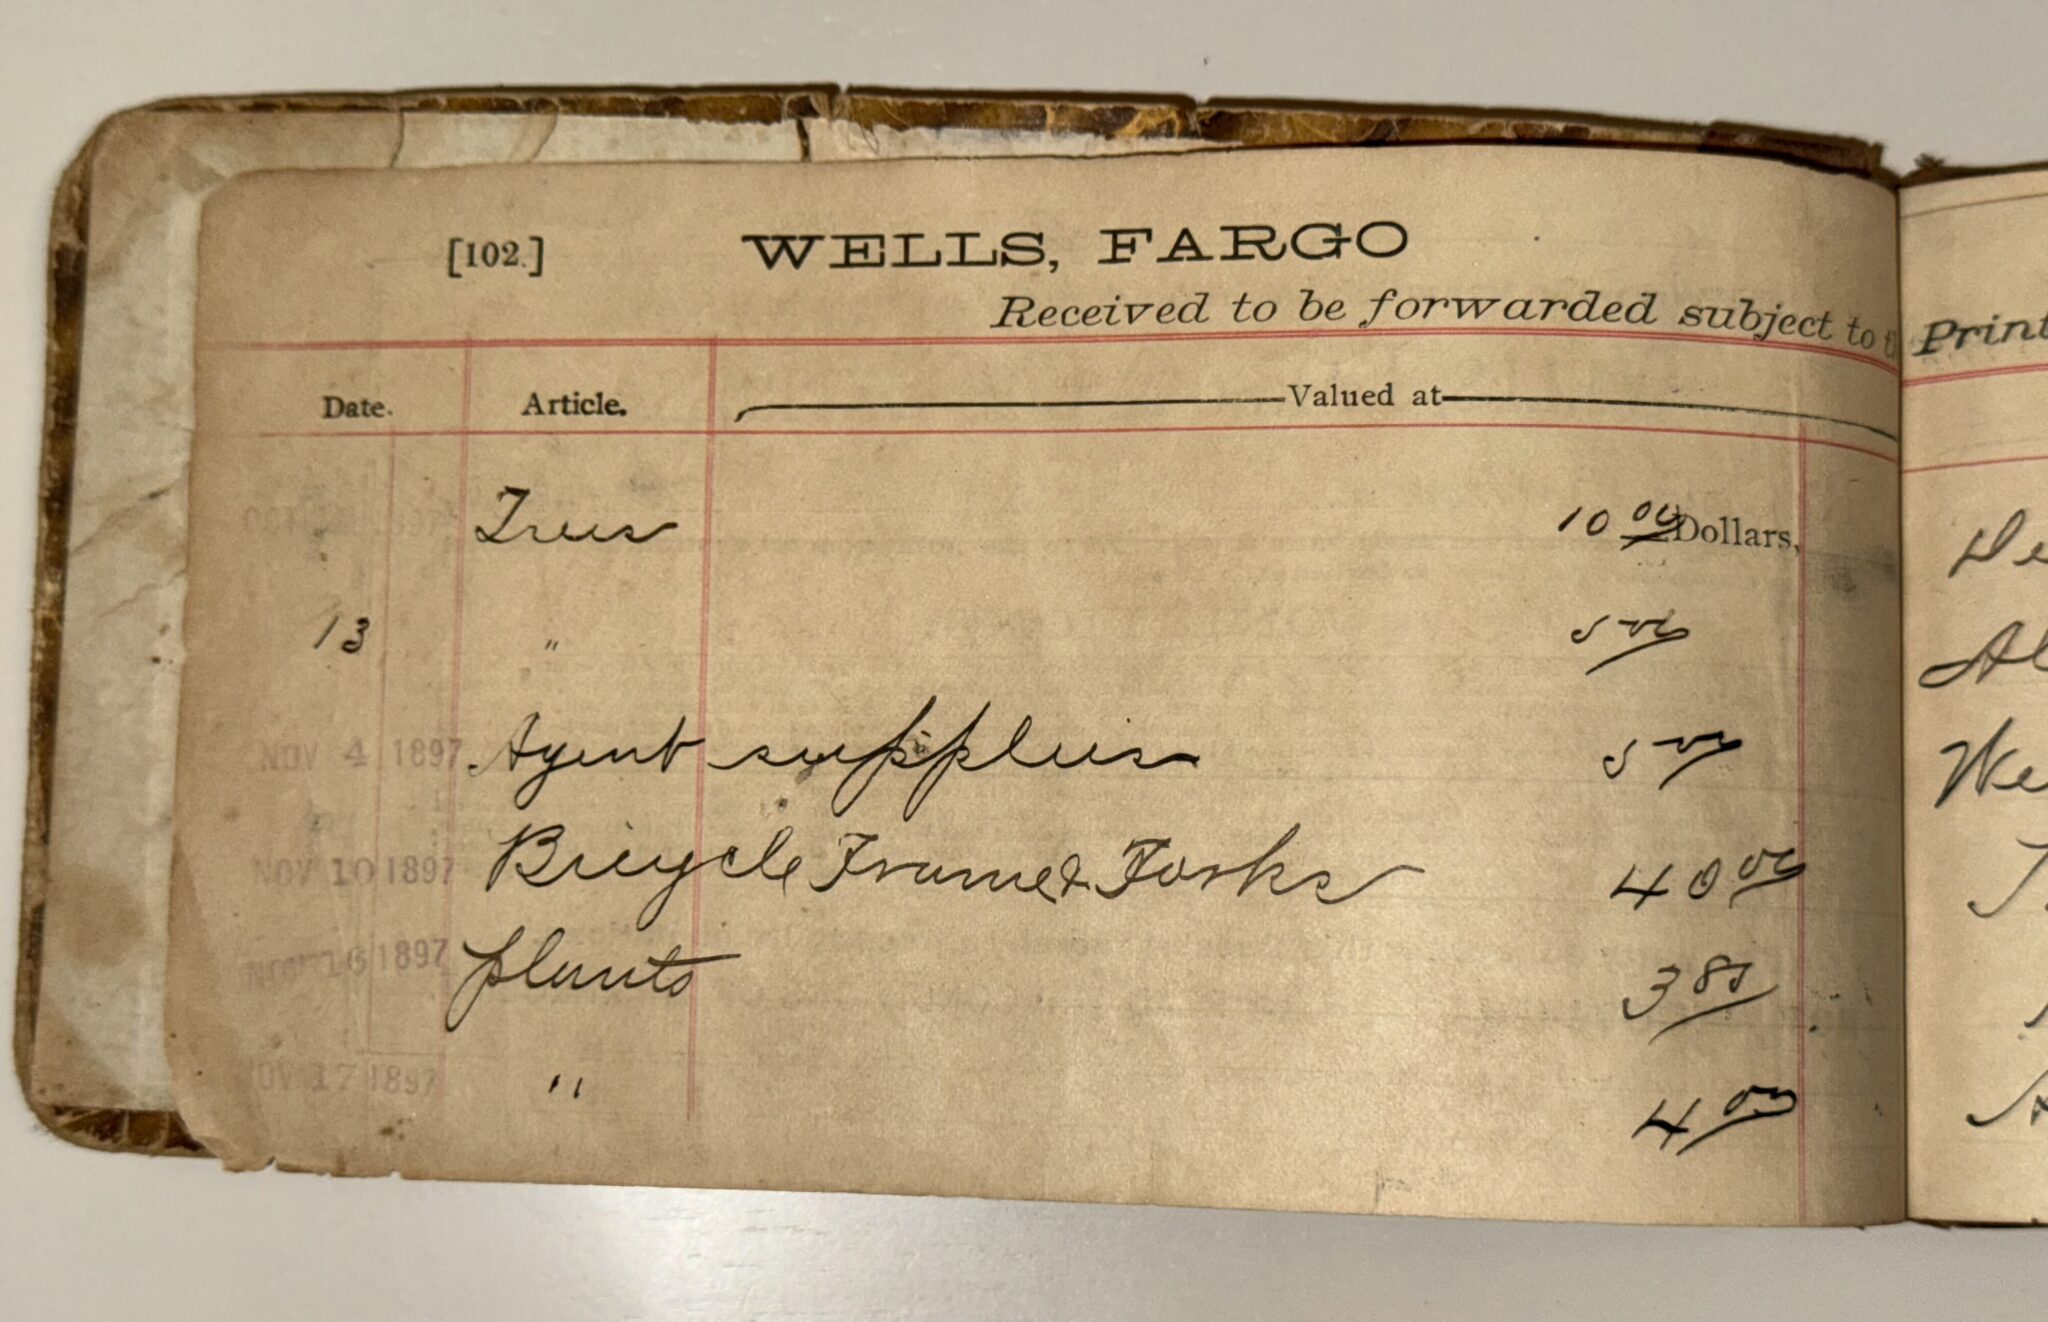 [102.] WELLS, FARGO
Received to be forwarded subject to t
Print
Date. Article. Valued at
Trees 10 00 Dollars,
13 " 5 00
NOV 4 1897 Agent supplies 5 00
NOV 10 1897 Bicycle Frame & Forks 40 00
NOV 16 1897 plants 3 85
NOV 17 1897 " 4 00
De
Al
We